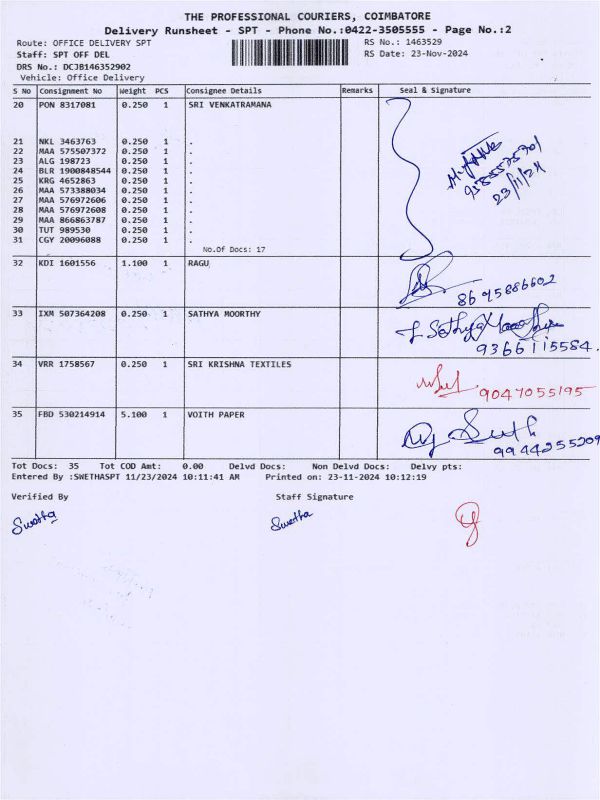 THE PROFESSIONAL COURIERS, COIMBATORE
Delivery Runsheet - SPT - Phone No.:0422-3505555 - Page No.:2
Route: OFFICE DELIVERY SPT RS No.: 1463529
Staff: SPT OFF DEL RS Date: 23-Nov-2024
DRS No.: DCJB146352902
Vehicle: Office Delivery
S No Consignment No Weight PCS Consignee Details Remarks Seal & Signature
20 PON 8317081 0.250 1 SRI VENKATRAMANA
21 NKL 3463763 0.250 1 .
22 MAA 575507372 0.250 1 .
23 ALG 198723 0.250 1 .
24 BLR 1900848544 0.250 1 .
25 KRG 4652863 0.250 1 .
26 MAA 573388034 0.250 1 .
27 MAA 576972606 0.250 1 .
28 MAA 576972608 0.250 1 .
29 MAA 866863787 0.250 1 .
30 TUT 989530 0.250 1 .
31 CGY 20096088 0.250 1 .
23/11/24
No.Of Docs: 17
32 KDI 1601556 1.100 1 RAGU
8695886602
33 IXM 507364208 0.250 1 SATHYA MOORTHY
9366115584.
34 VRR 1758567 0.250 1 SRI KRISHNA TEXTILES
9047055195
35 FBD 530214914 5.100 1 VOITH PAPER
9944255209
Tot Docs: 35 Tot COD Amt: 0.00 Delvd Docs: Non Delvd Docs: Delvy pts:
Entered By :SWETHASPT 11/23/2024 10:11:41 AM Printed on: 23-11-2024 10:12:19
Verified By Staff Signature
Swetha Swetha